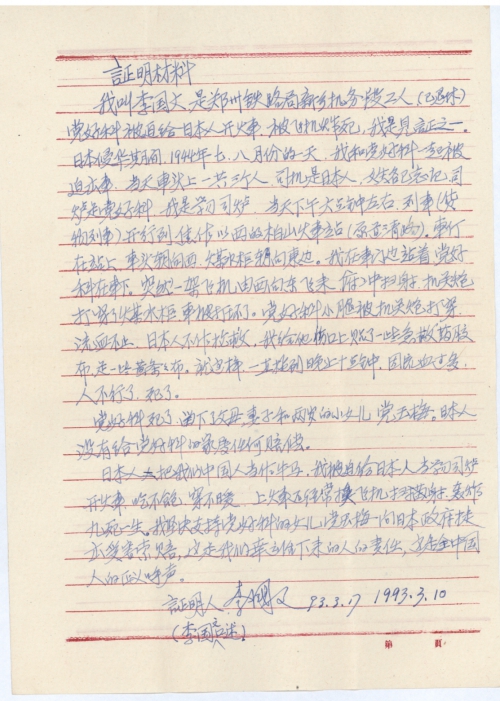 証明材料
我叫李国文是郑州铁路局新乡机务段工人(已退休)
党好科被迫给日本人开火车,被飞机炸死,我是見証之一。
日本侵华期间,1944年七、八月份的一天,我和党好科一起被
迫出車,当天車头上一共三个人,司机是日本人,姓名已忘记,司
炉是党好科,我是学习司炉,当天下午六点钟左右,列車(货
物列車)开行到焦作以西的柏山火車站
在站上,車头朝向西,煤水柜朝向東边。我在車门边站着,党好
科在車下。突然一架飞机由西向东飞来,俯冲扫射,机关炮
打穿了煤水柜,車被打坏了。党好科小腿被机关炮打穿,
流血不止,日本人不作抢救,我给他伤口上贴了一些急救药胶
布,是一块黄布。就这样,一直拖到晚上十点钟,因流血过多,
人不行了,死了。
党好科死了,留下了父母、妻子和两岁的小女儿党玉梅。日本人
没有给党好科的家属任何赔偿。
日本人把我们中国人当作牛马,我被迫给日本人当学习司炉
开火車,吃不飽,穿不暖,上火車还经常挨飞机扫射、轰炸
九死一生。我坚决支持党好科的女儿党玉梅向日本政府提
出受害索赔,这是我们幸存下来的人的責任,这是全中国
人的正义呼声。
証明人 李国文 93.3.17 1993.3.10
(李国文口述)
第 頁